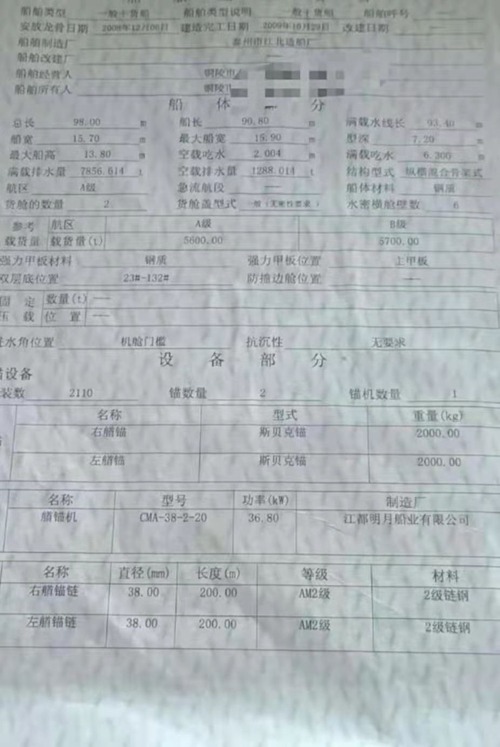 船舶类型 一般干货船 船舶类型说明 一般干货船 船舶呼号 —
安放龙骨日期 2008年12月06日 建造完工日期 2009年10月29日 改建日期
船舶制造厂 泰州市江北造船厂
船舶改建厂
船舶经营人 铜陵市
船舶所有人 铜陵
船 体 部 分
总长 98.00 m 船长 90.80 m 满载水线长 93.40 m
船宽 15.70 m 最大船宽 15.90 m 型深 7.20 m
最大船高 13.80 m 空载吃水 2.004 m 满载吃水 6.300 m
满载排水量 7856.014 t 空载排水量 1288.014 t 结构型式 纵横混合骨架式
航区 A级 急流航段 — 船体材料 钢质
货舱的数量 2 货舱盖型式 一般(无密性要求) 水密横舱壁数 6
参考 航区 A级 B级
载货量 载货量(t) 5600.00 5700.00
强力甲板材料 钢质 强力甲板位置 上甲板
双层底位置 23#-132# 防撞边舱位置 —
固定 数量(t) —
压载 位置 —
进水角位置 机舱门槛 抗沉性 无要求
设 备 部 分
锚设备
装数 2110 锚数量 2 锚机数量 1
名称 型式 重量(kg)
右艏锚 斯贝克锚 2000.00
左艏锚 斯贝克锚 2000.00
名称 型号 功率(kW) 制造厂
艏锚机 CMA-38-2-20 36.80 江都明月船业有限公司
名称 直径(mm) 长度(m) 等级 材料
右艏锚链 38.00 200.00 AM2级 2级链钢
左艏锚链 38.00 200.00 AM2级 2级链钢